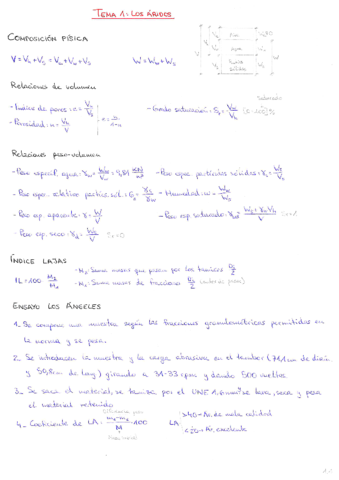 TEMA 1: LOS ÁRIDOS
COMPOSICIÓN FÍSICA
V = Vh + Vs = Va + Vw + Vs W = Ww + Ws
Relaciones de volumen
- Índice de poros: e = Vh/Vs
- Porosidad: n = Vh/V
e = n/1-n
- Grado saturación: Sr = Vw/Vh
Saturado
Relaciones peso-volumen
- Peso específ. agua: γw = Ww/Vw = 9,81 kN/m³
- Peso espe. partículas sólidas: γs = Ws/Vs
- Peso espe. relativo partíc. sól.: G = γs/γw
- Humedad: w = Ww/Ws
- Peso esp. aparente: γ = W/V
- Peso esp. saturado: γsat = Ws + γw Vh/V Sr=1
- Peso esp. seco: γd = Ws/V Sr=0
ÍNDICE LAJAS
IL = 100 M2/M1
· M2: Suma masas que pasan por los tamices
· M1: Suma masas de fracciones
ENSAYO LOS ÁNGELES
1. Se compone una muestra según las fracciones granulométricas permitidas en
la norma y se pesa.
2. Se introducen la muestra y la carga abrasiva en el tambor (711mm de diám
y 508mm de long) girando a 31-33 rpm y dando 500 vueltas
3. Se saca el material, se tamiza por el UNE 1,6mm, se lava, seca y pesa
el material retenido
4. Coeficiente de LA = ·100
LA
>40→ Ar. de mala calidad
→ Ar. excelente